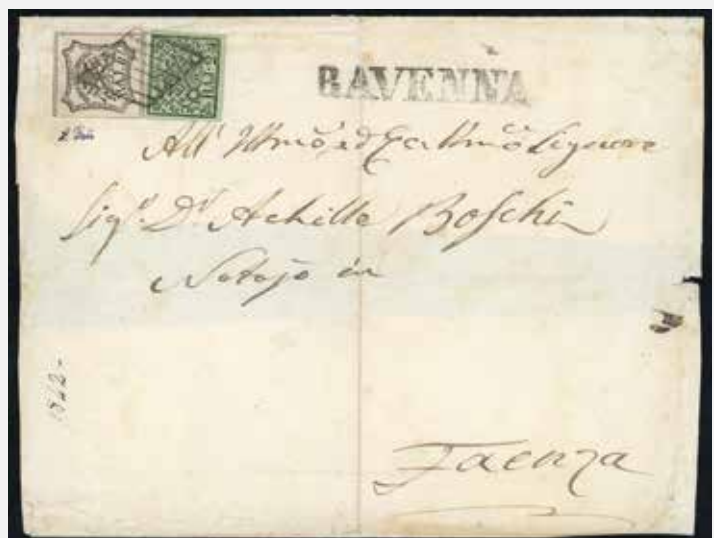 BAJ
BAJ
RAVENNA
All' Illmo, ed Eccellmo Signore
Sigr. Dr. Achille Boschi
Notajo in
Faenza